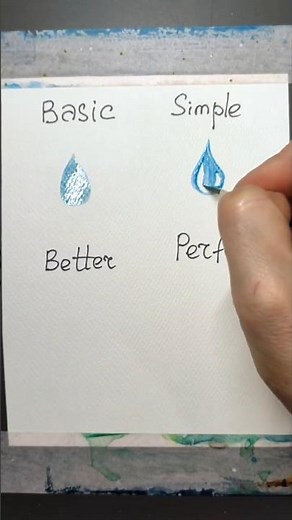 Basic Simple
Better Perf